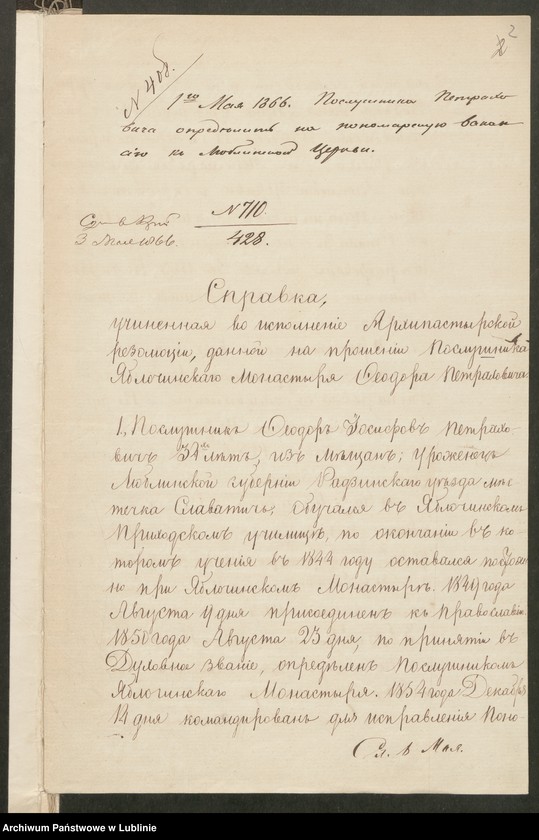 2
№ 408.
1го Мая 1866. Послушника Петрало
вича определить на пономарскую вакан
сію къ Люблинской Церкви.
№ 710.
428.
3 Мая 1866.
Справка,
учиненная во исполненіе Архипастырской
резолюціи, данной на прошеніи Послушника
Яблочинскаго Монастыря Ѳеодора Петраловича.
1, Послушникъ Ѳеодоръ Іосифовъ Петрало-
вичъ 34 лѣтъ, изъ мѣщанъ; уроженецъ
Люблинской губерніи Радзинскаго уѣзда мѣс
течка Славатичъ; обучался въ Яблочинскомъ
Приходскомъ училищѣ, по окончаніи въ ко-
торомъ ученія въ 1844 году оставался
но при Яблочинскомъ Монастырѣ. 1849 года
Августа 4 дня присоединенъ къ Православію
1850 года Августа 23 дня, по принятіи въ
Духовно званіе, опредѣленъ Послушникомъ
Яблочинскаго Монастыря. 1854 года Декабря
14 дня командированъ для исправленія Поно-
Сл. 8 Мая.
Archiwum Państwowe w Lublinie